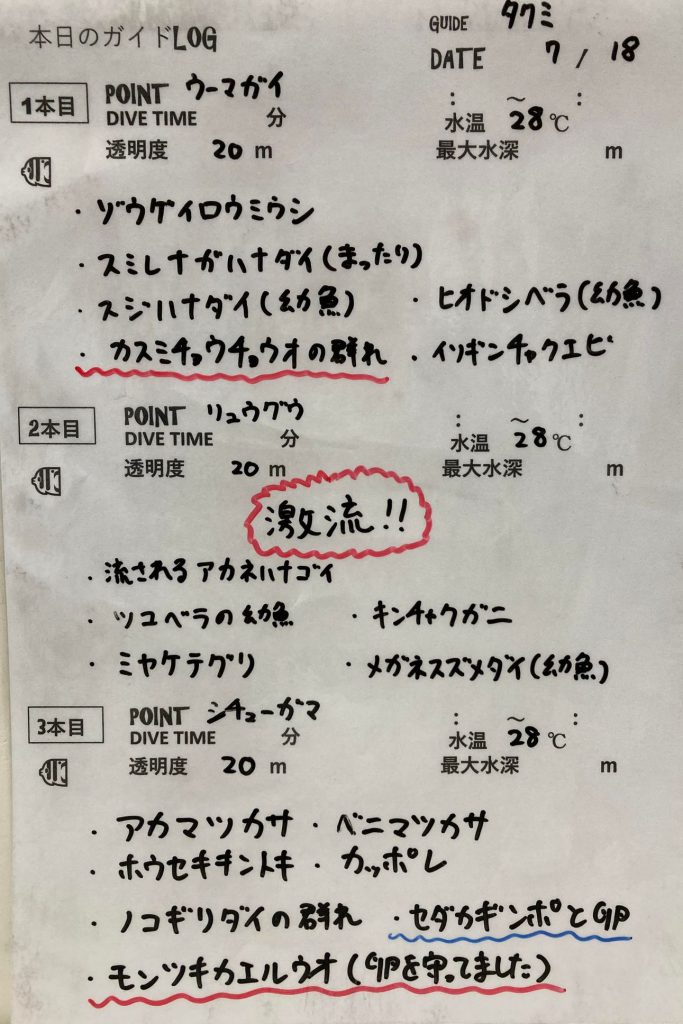 本日のガイドLOG GUIDE タクミ
DATE 7 / 18
1本目 POINT ウーマガイ : ～ :
DIVE TIME 分 水温 28℃
透明度 20 m 最大水深 m
・ゾウゲイロウミウシ
・スミレナガハナダイ(まったり)
・スジハナダイ(幼魚) ・ヒオドシベラ(幼魚)
・カスミチョウチョウオの群れ ・イソギンチャクエビ
2本目 POINT リュウグウ : ～ :
DIVE TIME 分 水温 28℃
透明度 20 m 最大水深 m
激流!!
・流されるアカネハナゴイ
・ツユベラの幼魚 ・キンチャクガニ
・ミヤケテグリ ・メガネスズメダイ(幼魚)
3本目 POINT シチューガマ : ～ :
DIVE TIME 分 水温 28℃
透明度 20 m 最大水深 m
・アカマツカサ ・ベニマツカサ
・ホウセキキントキ ・カッポレ
・ノコギリダイの群れ ・セダカギンポとGP
・モンツキカエルウオ(GPを守ってました)